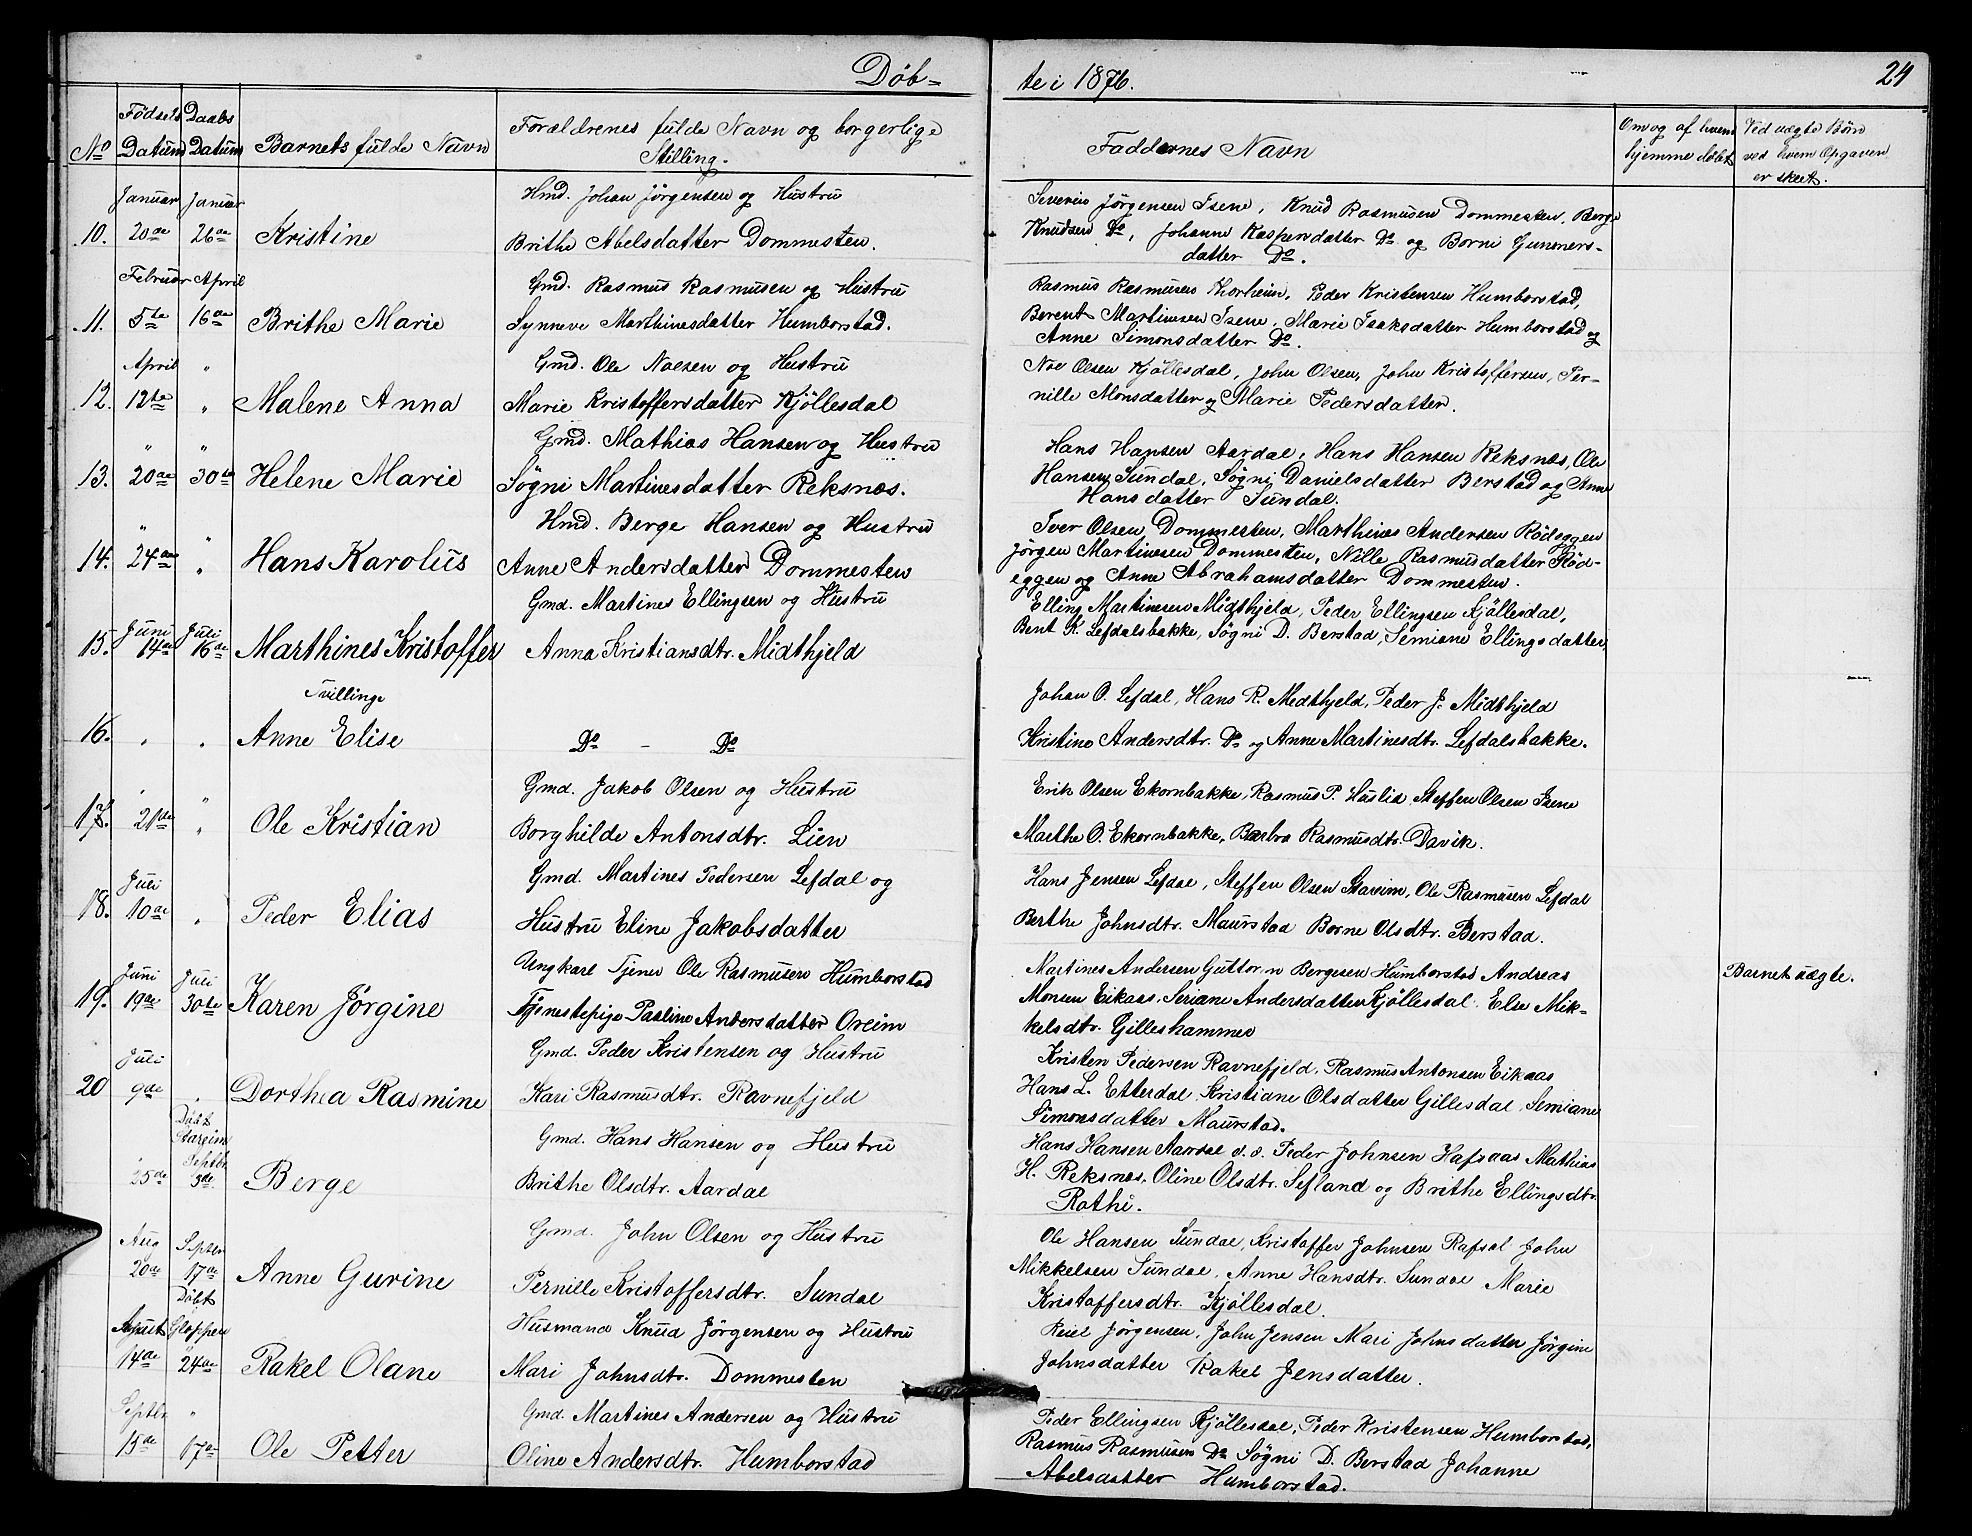 Døb=
te i 1876.
24
No
Fødsels Datum
Daabs Datum
Barnets fulde Navn
Forældrenes fulde Navn og borgerlige
Stilling.
Faddernes Navn
Om og af hvem
hjemme døbt
Ved uægte Børn
ved hvem Opgaven
er skeet.
Januar Januar
Hmd. Johan Jørgensen og Hustru
10. 20de 26de Kristine
Brithe Abelsdatter Dommesten.
Severin Jørgensen Isene, Knud Rasmusen Dommesten, Berge
Knudsen Do, Johanne Kaspersdatter Do og Borni Gunners-
datter Do.
Februar April
Gmd. Rasmus Rasmusen og Hustru
11. 5te 16de Brithe Marie
Synneve Marthinesdatter Humborstad.
Rasmus Rasmusen Thorheim, Peder Kristensen Humborstad,
Berent Martinesen Isene, Marie Isaksdatter Humborstad og
Anne Simonsdatter Do.
April "
Gmd. Ole Noesen og Hustru
12. 12te " Malene Anna
Marie Kristoffersdatter Kjöllesdal
Noe Olsen Kjöllesdal, John Olsen, John Kristoffersen, Per-
nille Monsdatter og Marie Pedersdatter.
" "
Gmd. Mathias Hansen og Hustru
13. 20de 30te Helene Marie
Søgni Martinesdatter Reksnæs.
Hans Hansen Aardal, Hans Hansen Reksnæs, Ole
Hansen Sundal, Søgni Danielsdatter Berstad og Anne
Hansdatter Sundal.
" "
Hmd. Berge Hansen og Hustru
14. 24de " Hans Karolus
Anne Andersdatter Dommesten
Iver Olsen Dommesten, Marthines Andersen Rödeggen
Jørgen Martinesen Dommesten, Nille Rasmusdatter Röd-
eggen og Anne Abrahamsdatter Dommesten.
Juni Juli
Gmd. Martines Ellingsen og Hustru
15. 14de 16de Marthines Kristoffer
Anna Kristiansdtr. Midthjeld
Elling Martinesen Midthjeld, Peder Ellingsen Kjöllesdal,
Bent K. Lefdalsbakke, Søgni D. Berstad, Semiane Ellingsdatter,
Tvillinge
16. " " Anne Elise
Do - Do
Johan O. Lefdal, Hans R. Medthjeld, Peder J. Midthjeld
Kristine Andersdtr. Do og Anne Martinesdtr. Lefdalsbakke.
" "
Gmd. Jakob Olsen og Hustru
17. 21de " Ole Kristian
Borghilde Antonsdtr. Lien
Erik Olsen Ekornbakke, Rasmus P. Huslid, Steffen Olsen Isene
Marthe O. Ekornbakke, Barbra Rasmusdtr. Davik.
Juli
Gmd. Martines Pedersen Lefdal og
18. 10de " Peder Elias
Hustru Eline Jakobsdatter
Hans Jensen Lefdal, Steffen Olsen Stareim, Ole Rasmusen Lefdal
Berthe Johnsdtr. Maurstad Borne Olsdtr. Berstad.
Juni Juli
Ungkarl Tjener Ole Rasmusen Humborstad
19. 19de 30te Karen Jørgine
Tjenestepige Pauline Andersdatter Oreim
Martines Andersen Guttorm Bergesen Humborstad Andreas
Monsen Eikaas, Seriane Andersdatter Kjöllesdal, Else Mik-
kelsdtr. Gilleshammer
Barnet uægte.
Juli
Gmd. Peder Kristensen og Hustru
20 9de " Dorthea Rasmine
Kari Rasmusdtr. Ravnefjeld
Kristen Pedersen Ravnefjeld, Rasmus Antonsen Eikaas
Hans L. Etterdal, Kristiane Olsdatter Gillesdal, Semiane
Simonsdatter Maurstad.
Döbt
Stareim
Septbr
Gmd. Hans Hansen og Hustru
25de 3de Berge
Brithe Olsdtr. Aardal
Hans Hansen Aardal d. s. Peder Johnsen Hafsaas Mathias
H. Reksnæs, Oline Olsdtr. Sefland og Brithe Ellingsdtr.
Rothi.
Aug Septbr
Gmd. John Olsen og Hustru
20de 17de Anne Gurine
Pernille Kristoffersdtr. Sundal
Ole Hansen Sundal, Kristoffer Johnsen Rafsal John
Mikkelsen Sundal, Anne Hansdtr. Sundal Marie
Kristoffersdtr. Kjöllesdal.
Döbt
August Gloppen
Husmand Knud Jørgensen og Hustru
14de 24de Rakel Olane
Mari Johnsdtr. Dommesten
Reiel Jørgensen, John Jensen Mari Johnsdatter Jørgine
Johnsdatter Rakel Jensdatter.
Septbr "
Gmd. Martines Andersen og Hustru
15de 17de Ole Petter
Oline Andersdtr. Humborstad
Peder Ellingsen Kjöllesdal, Peder Kristensen Humborstad,
Rasmus Rasmusen Do Søgni D. Berstad Johanne
Abelsdatter Humborstad.